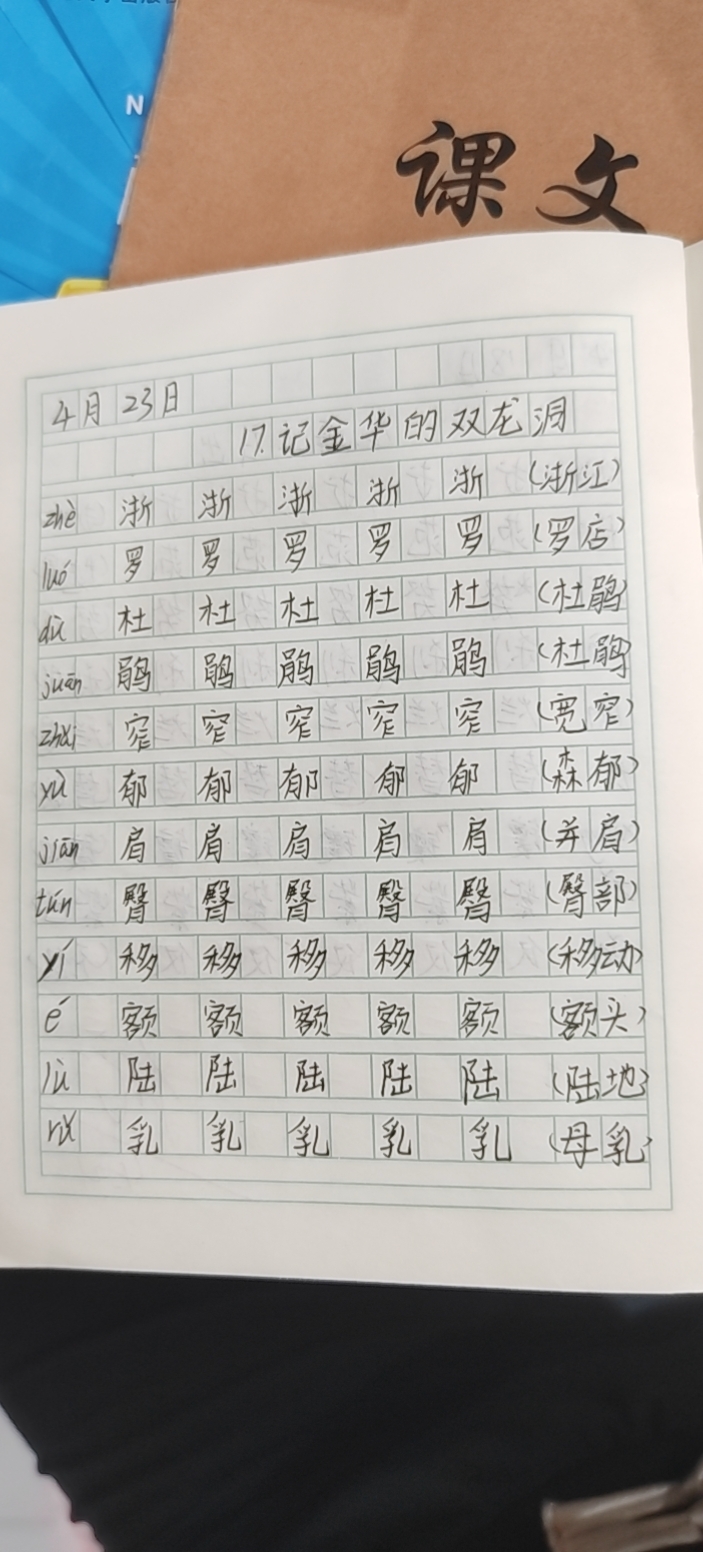 N
课文
4月23日
17.记金华的双龙洞
zhè 浙 浙 浙 浙 浙 (浙江)
luó 罗 罗 罗 罗 罗 (罗店)
dù 杜 杜 杜 杜 杜 (杜鹃)
juān 鹃 鹃 鹃 鹃 鹃 (杜鹃)
zhǎi 窄 窄 窄 窄 窄 (宽窄)
yù 郁 郁 郁 郁 郁 (森郁)
jiān 肩 肩 肩 肩 肩 (并肩)
tún 臀 臀 臀 臀 臀 (臀部)
yí 移 移 移 移 移 (移动)
é 额 额 额 额 额 (额头)
lù 陆 陆 陆 陆 陆 (陆地)
rǔ 乳 乳 乳 乳 乳 (母乳)